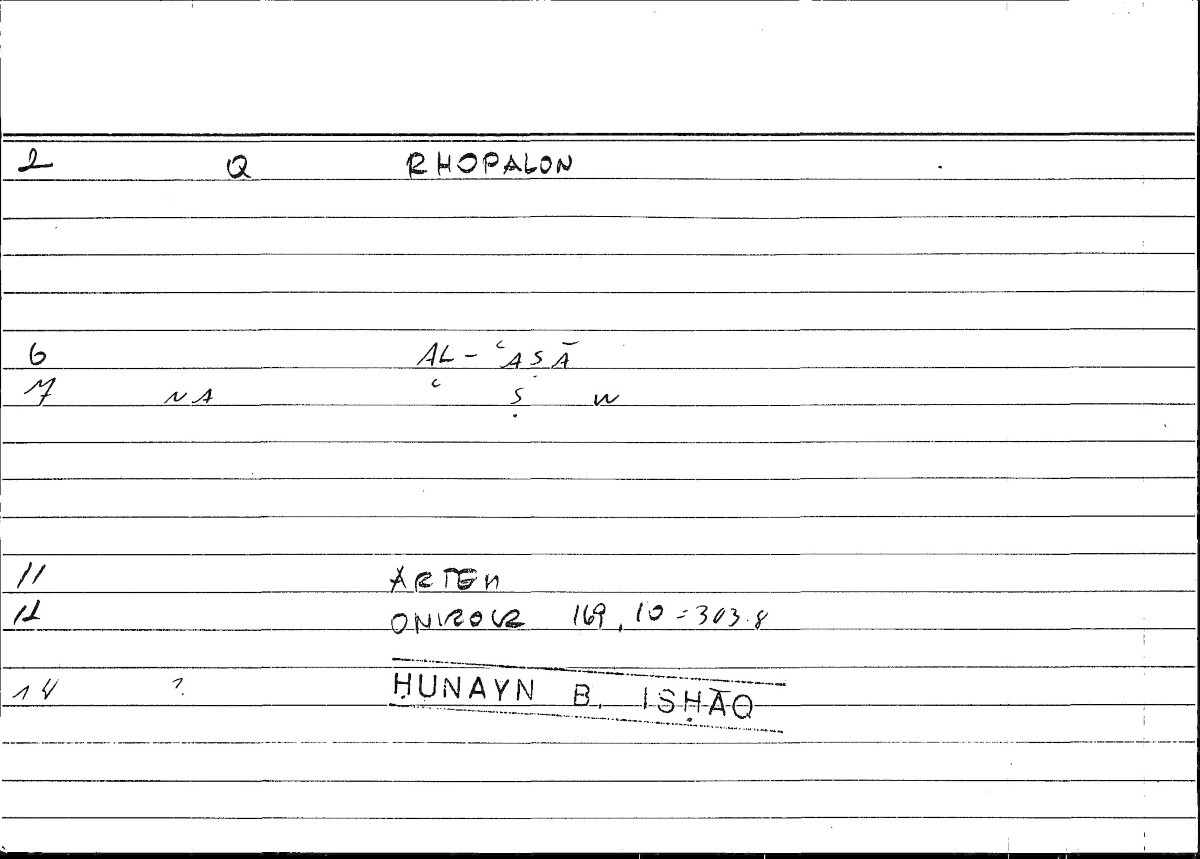 2 Q RHOPALON
6 AL-ʿAṢĀ
7 NA ʿ Ṣ W
11 ARTEM
12 ONIROCR 169,10=303.8
14 ? ḤUNAYN B. ISḤĀQ